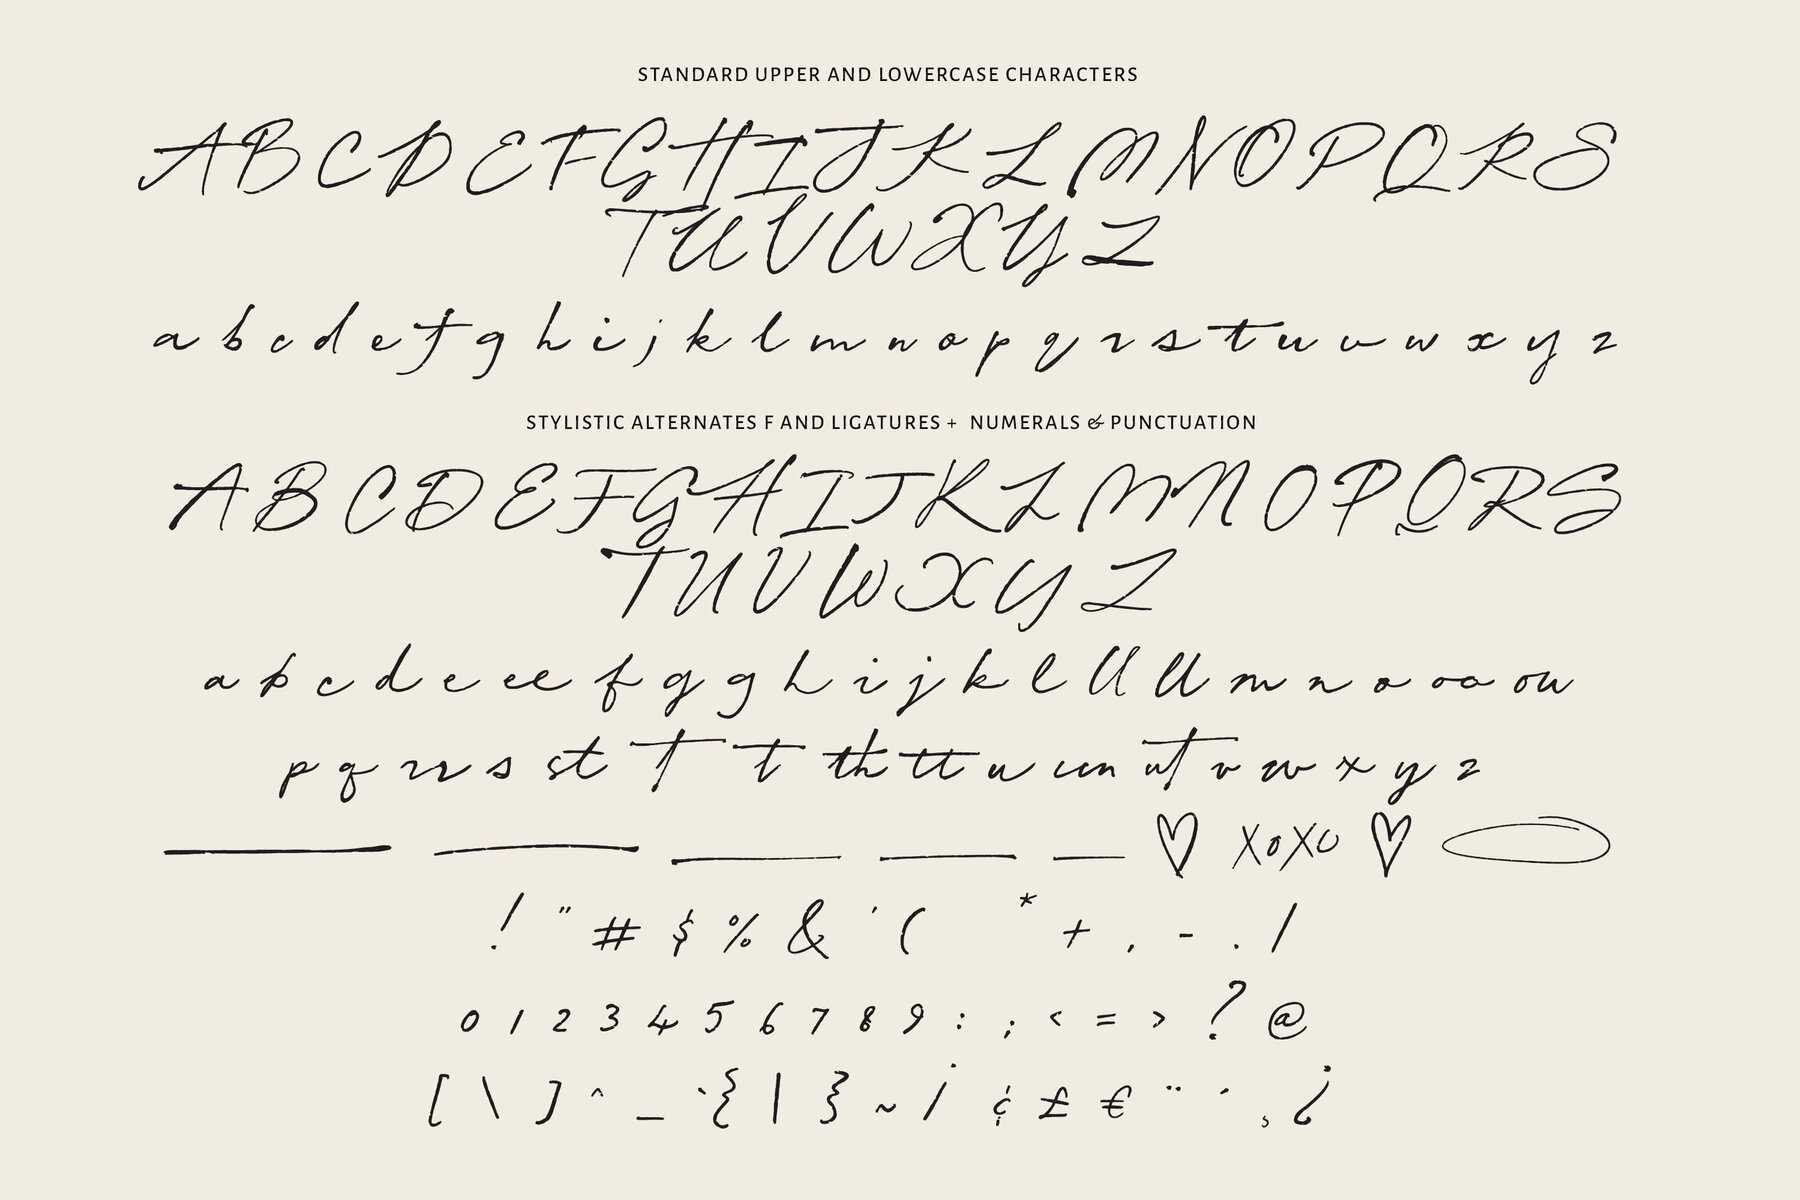 STANDARD UPPER AND LOWERCASE CHARACTERS
A B C D E F G H I J K L M N O P Q R S
T U V W X Y Z
a b c d e f g h i j k l m n o p q r s t u v w x y z
STYLISTIC ALTERNATES F AND LIGATURES + NUMERALS & PUNCTUATION
A B C D E F G H I J K L M N O P Q R S
T U V W X Y Z
a b c d e ee f g g h i j k l ll ll m n o oo ou
p q r rs s st t t th tt u un ut v w x y z
xoxo
! " # $ % & ' ( * + , - . /
0 1 2 3 4 5 6 7 8 9 : ; < = > ? @
[ \ ] ^ _ ` { | } ~ ¡ ¢ £ € ¨ ´ ¸ ¿